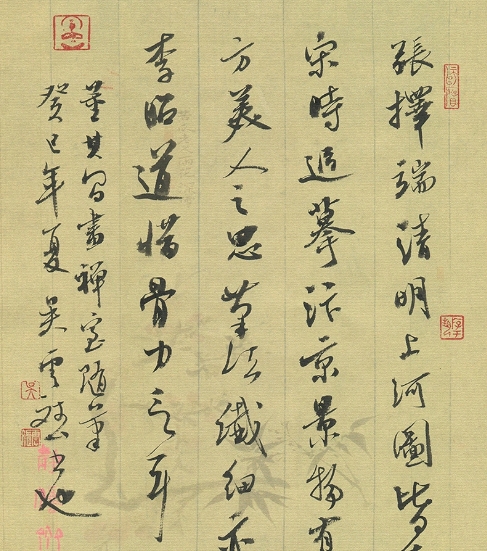 張擇端清明上河圖皆
宋時追摹汴京景物有
方美人之思筆法纖細亦
李昭道惜骨力乏耳
董其昌畫禪室随筆
癸巳年夏吴雲書也
吴